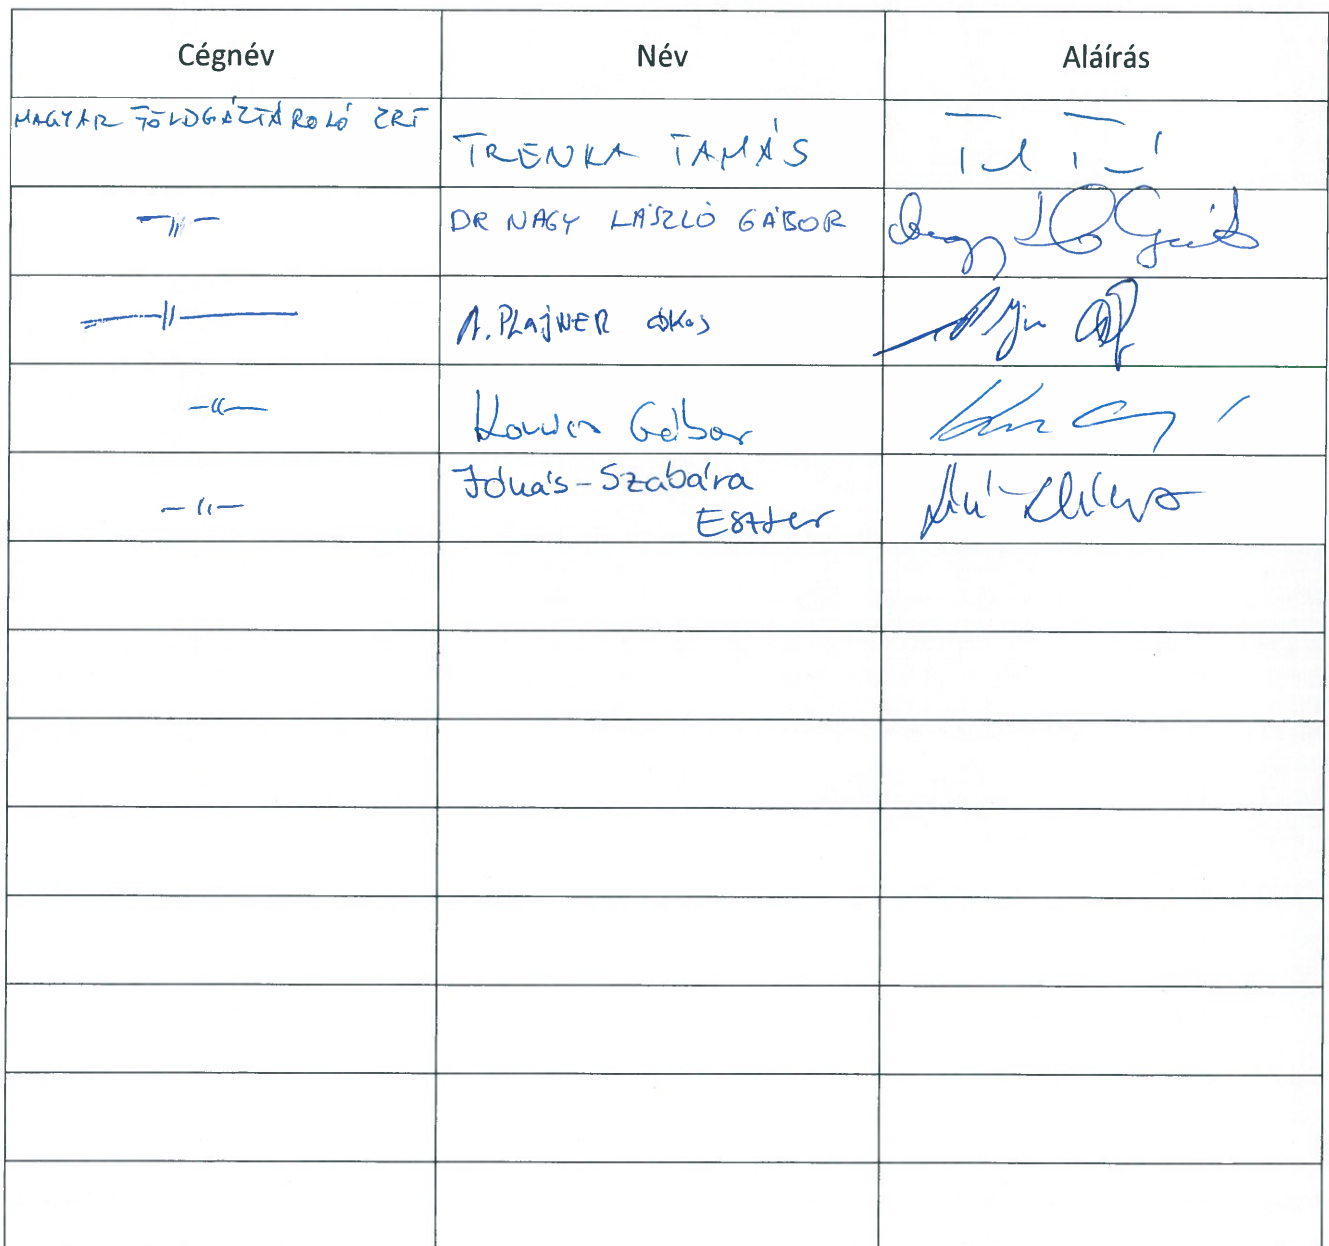 Cégnév Név Aláírás
MAGYAR FÖLDGÁZTÁROLÓ ZRT TRENKA TAMÁS
—〃— DR NAGY LÁSZLÓ GÁBOR
—〃— A. PLAJNER ÁKOS
—〃— Gábor
—〃— Jónás-Szabára
Eszter